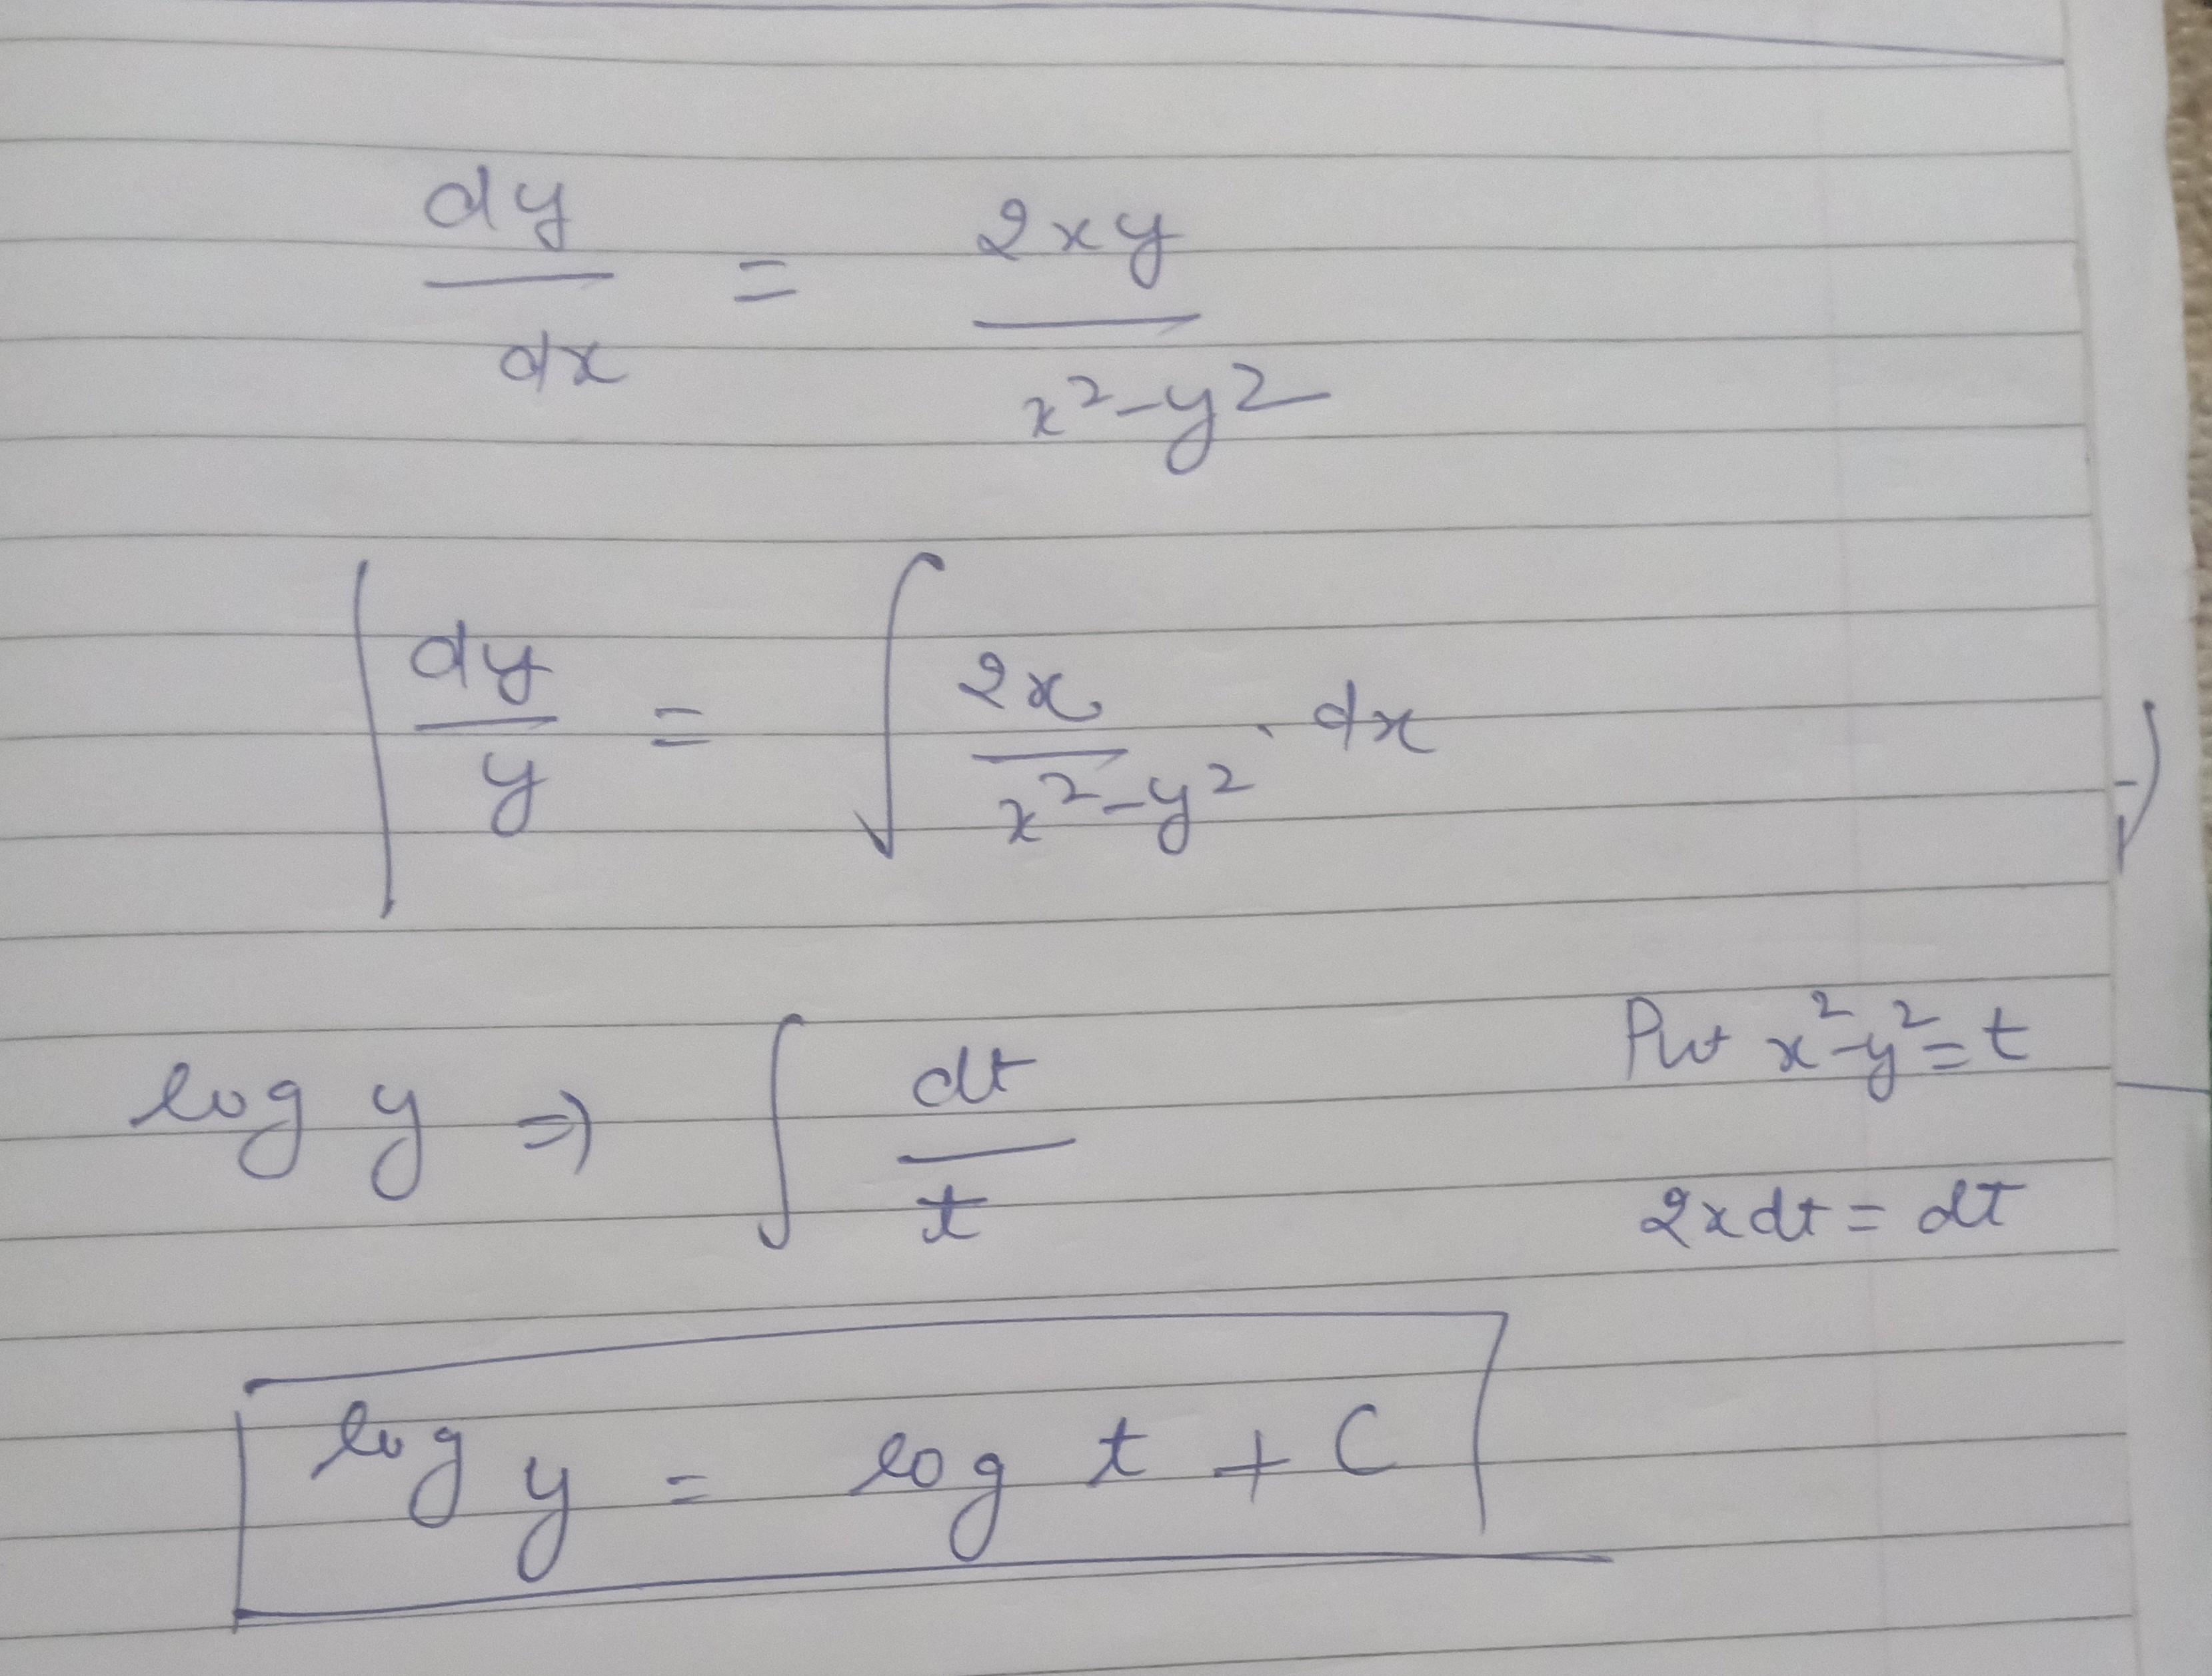 dy/dx = 2xy/x²-y²
∫ dy/y = ∫ 2x/x²-y² . dx
log y ⇒ ∫ dt/t
Put x²-y² = t
2x dt = dt
log y = log t + C